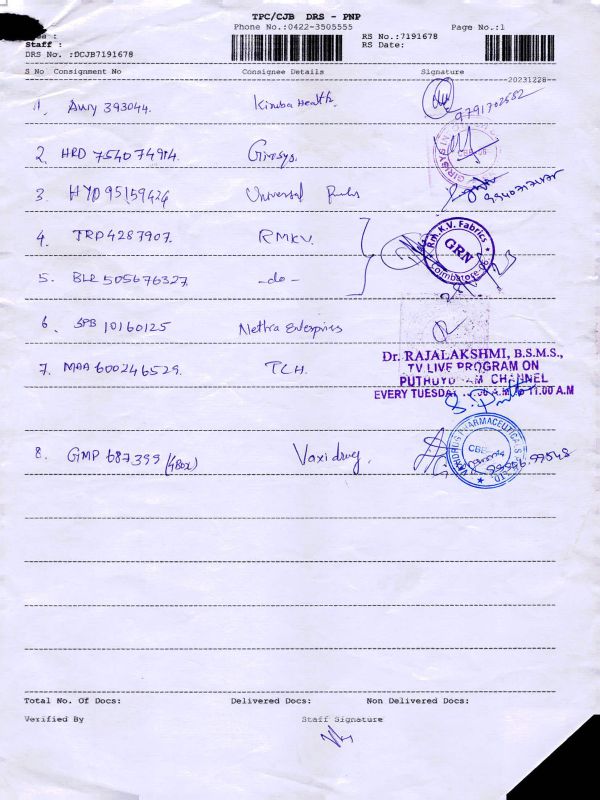 TPC/CJB DRS - PNP
Phone No.:0422-3505555 Page No.:1
RS No.:7191678
Staff :
RS Date:
DRS No. :DCJB7191678
S No Consignment No Consignee Details Signature
20231228
1. AWY 393044. Kimba Health.
9791702582
2. HRD 754074914. Gimsys.
3. HYD 95159424 Universal
4. TRP 4287907. RMKV.
Rm. K.V. Fabrics
GRN
Coimbatore
5. BLR 505676327 -do-
6. SPB 10160125 Nethra Enterprises
7. MAA 600246529. TCH.
Dr. RAJALAKSHMI, B.S.M.S.,
TV LIVE PROGRAM ON
CHANNEL
EVERY TUESDAY 11.00 A.M
8. GMP 687399 (4Box) Vaxidrug.
PHARMACEUTICALS
CBE
Total No. Of Docs: Delivered Docs: Non Delivered Docs:
Verified By Staff Signature